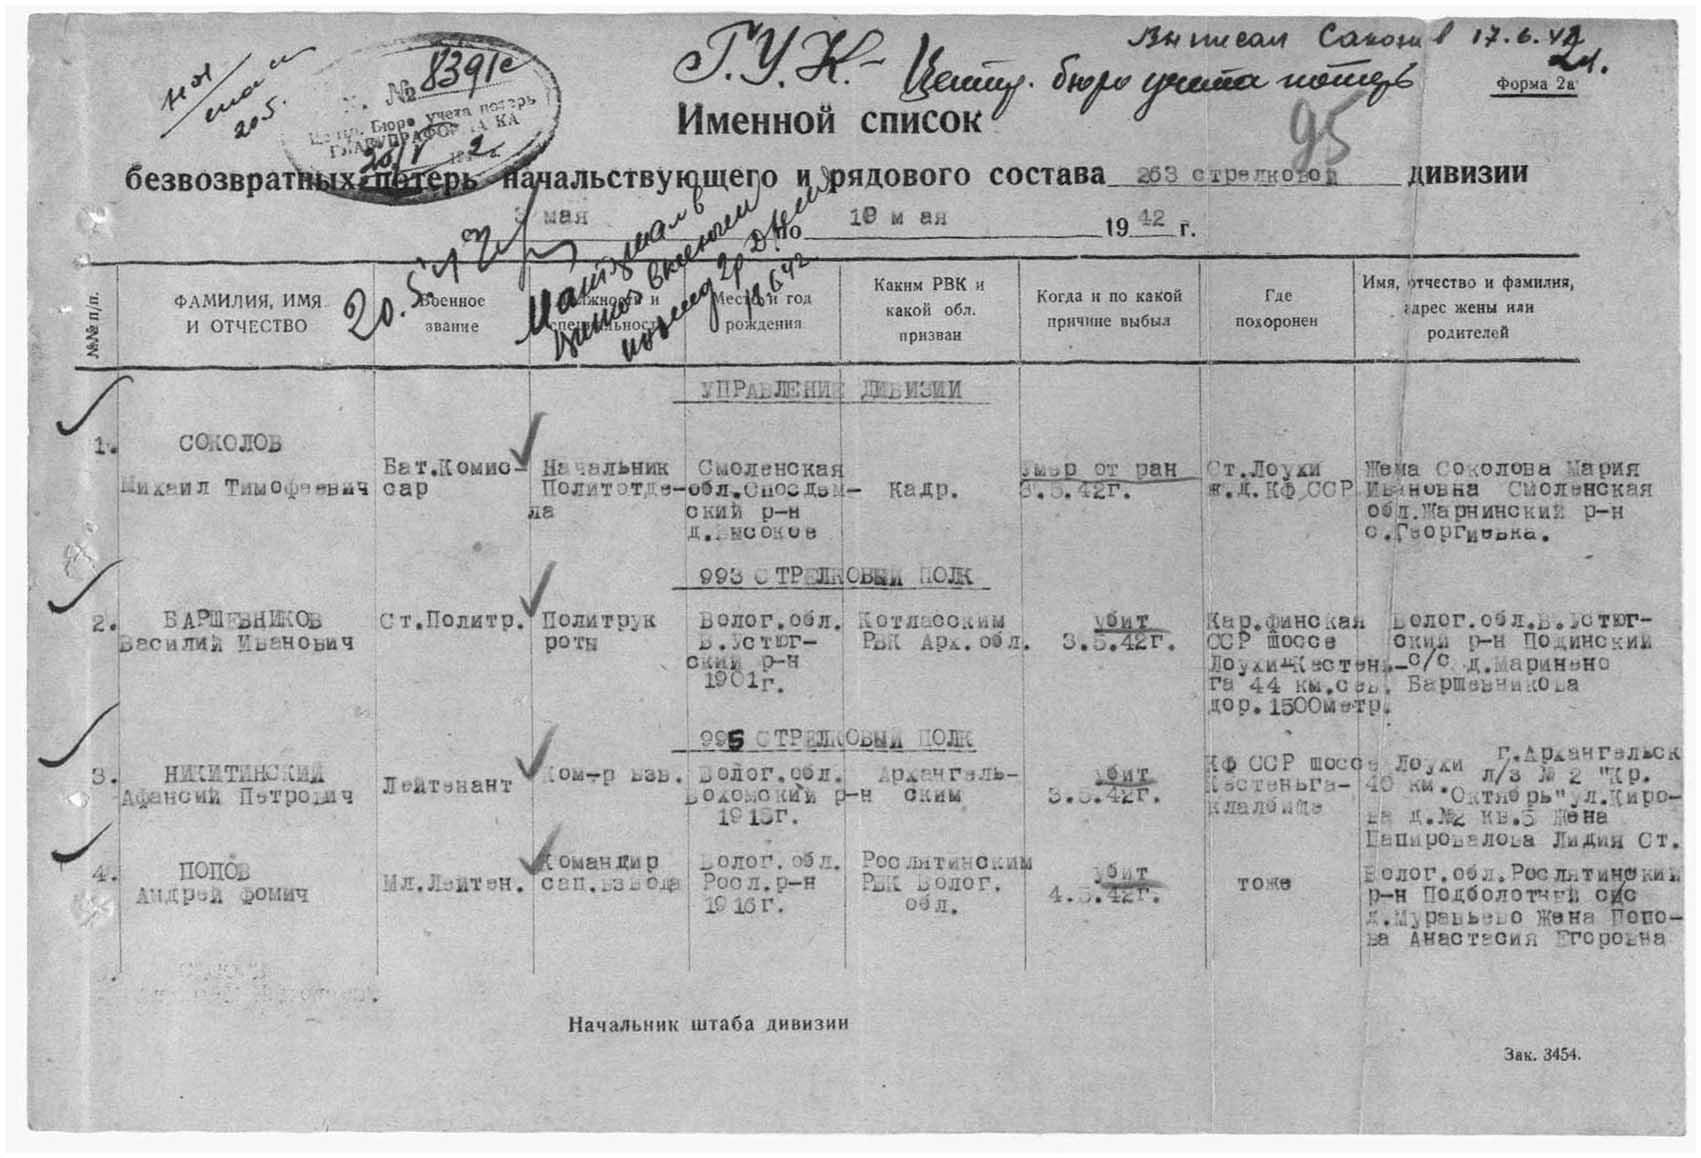 Выписал 17.6.42
Г.У.К.-
Центр. бюро учета потерь
24.
Форма 2а
№ 8391с
Бюро учета потерь
95
Именной список
безвозвратных потерь начальствующего и рядового состава 263 стрелковой дивизии
3 мая по 19 мая 1942 г.
20.5.
№№ п/п.
ФАМИЛИЯ, ИМЯ
И ОТЧЕСТВО
Военное
звание
Должность и
специальность
Место и год
рождения
Каким РВК и
какой обл.
призван
Когда и по какой
причине выбыл
Где
похоронен
Имя, отчество и фамилия,
адрес жены или
родителей
УПРАВЛЕНИЕ ДИВИЗИИ
1.
СОКОЛОВ
Михаил Тимофеевич
Бат.Комис-
сар
Начальник
Политотде-
ла
Смоленская
ский р-н
д.Высокое
Кадр.
умер от ран
3.5.42г.
Ст.Лоухи
ж.д.КФ ССР
Жема Соколова Мария
Ивановна Смоленская
обл.Жарнинский р-н
с.Георгиевка.
993 СТРЕЛКОВЫЙ ПОЛК
2.
БАРШЕВНИКОВ
Василий Иванович
Ст.Политр.
Политрук
роты
Волог.обл.
В.Устюг-
ский р-н
1901г.
Котласским
РВК Арх.обл.
убит
3.5.42г.
Кар.финская
ССР шоссе
Лоухи-Кестень-
га 44 км.сев.
дор.1500метр.
Волог.обл.В.Устюг-
ский р-н Подинский
с/с д.Маринено
Баршевникова
995 СТРЕЛКОВЫЙ ПОЛК
3.
НИКИТИНСКИЙ
Афансий Петрович
Лейтенант
Ком-р взв.
Волог.обл.
Вохомский р-н
1913г.
Архангель-
ским
убит
3.5.42г.
КФ ССР шоссе Лоухи
Кестеньга- 40 км.
кладбище
г.Архангельск
л/з № 2 "Кр.
Октябрь"ул.Киро-
ва д.№2 кв.5 Жена
Папировалова Лидия Ст.
4.
ПОПОВ
Андрей Фомич
Мл.Лейтен.
Командир
сап.взвода
Волог.обл.
Росл.р-н
1916г.
Рослятинским
РВК Волог.
обл.
убит
4.5.42г.
тоже
Волог.обл.Рослятинский
р-н Подболотный с/с
д.Муравьево Жена Попо-
ва Анастасия Егоровна
Начальник штаба дивизии
Зак. 3454.